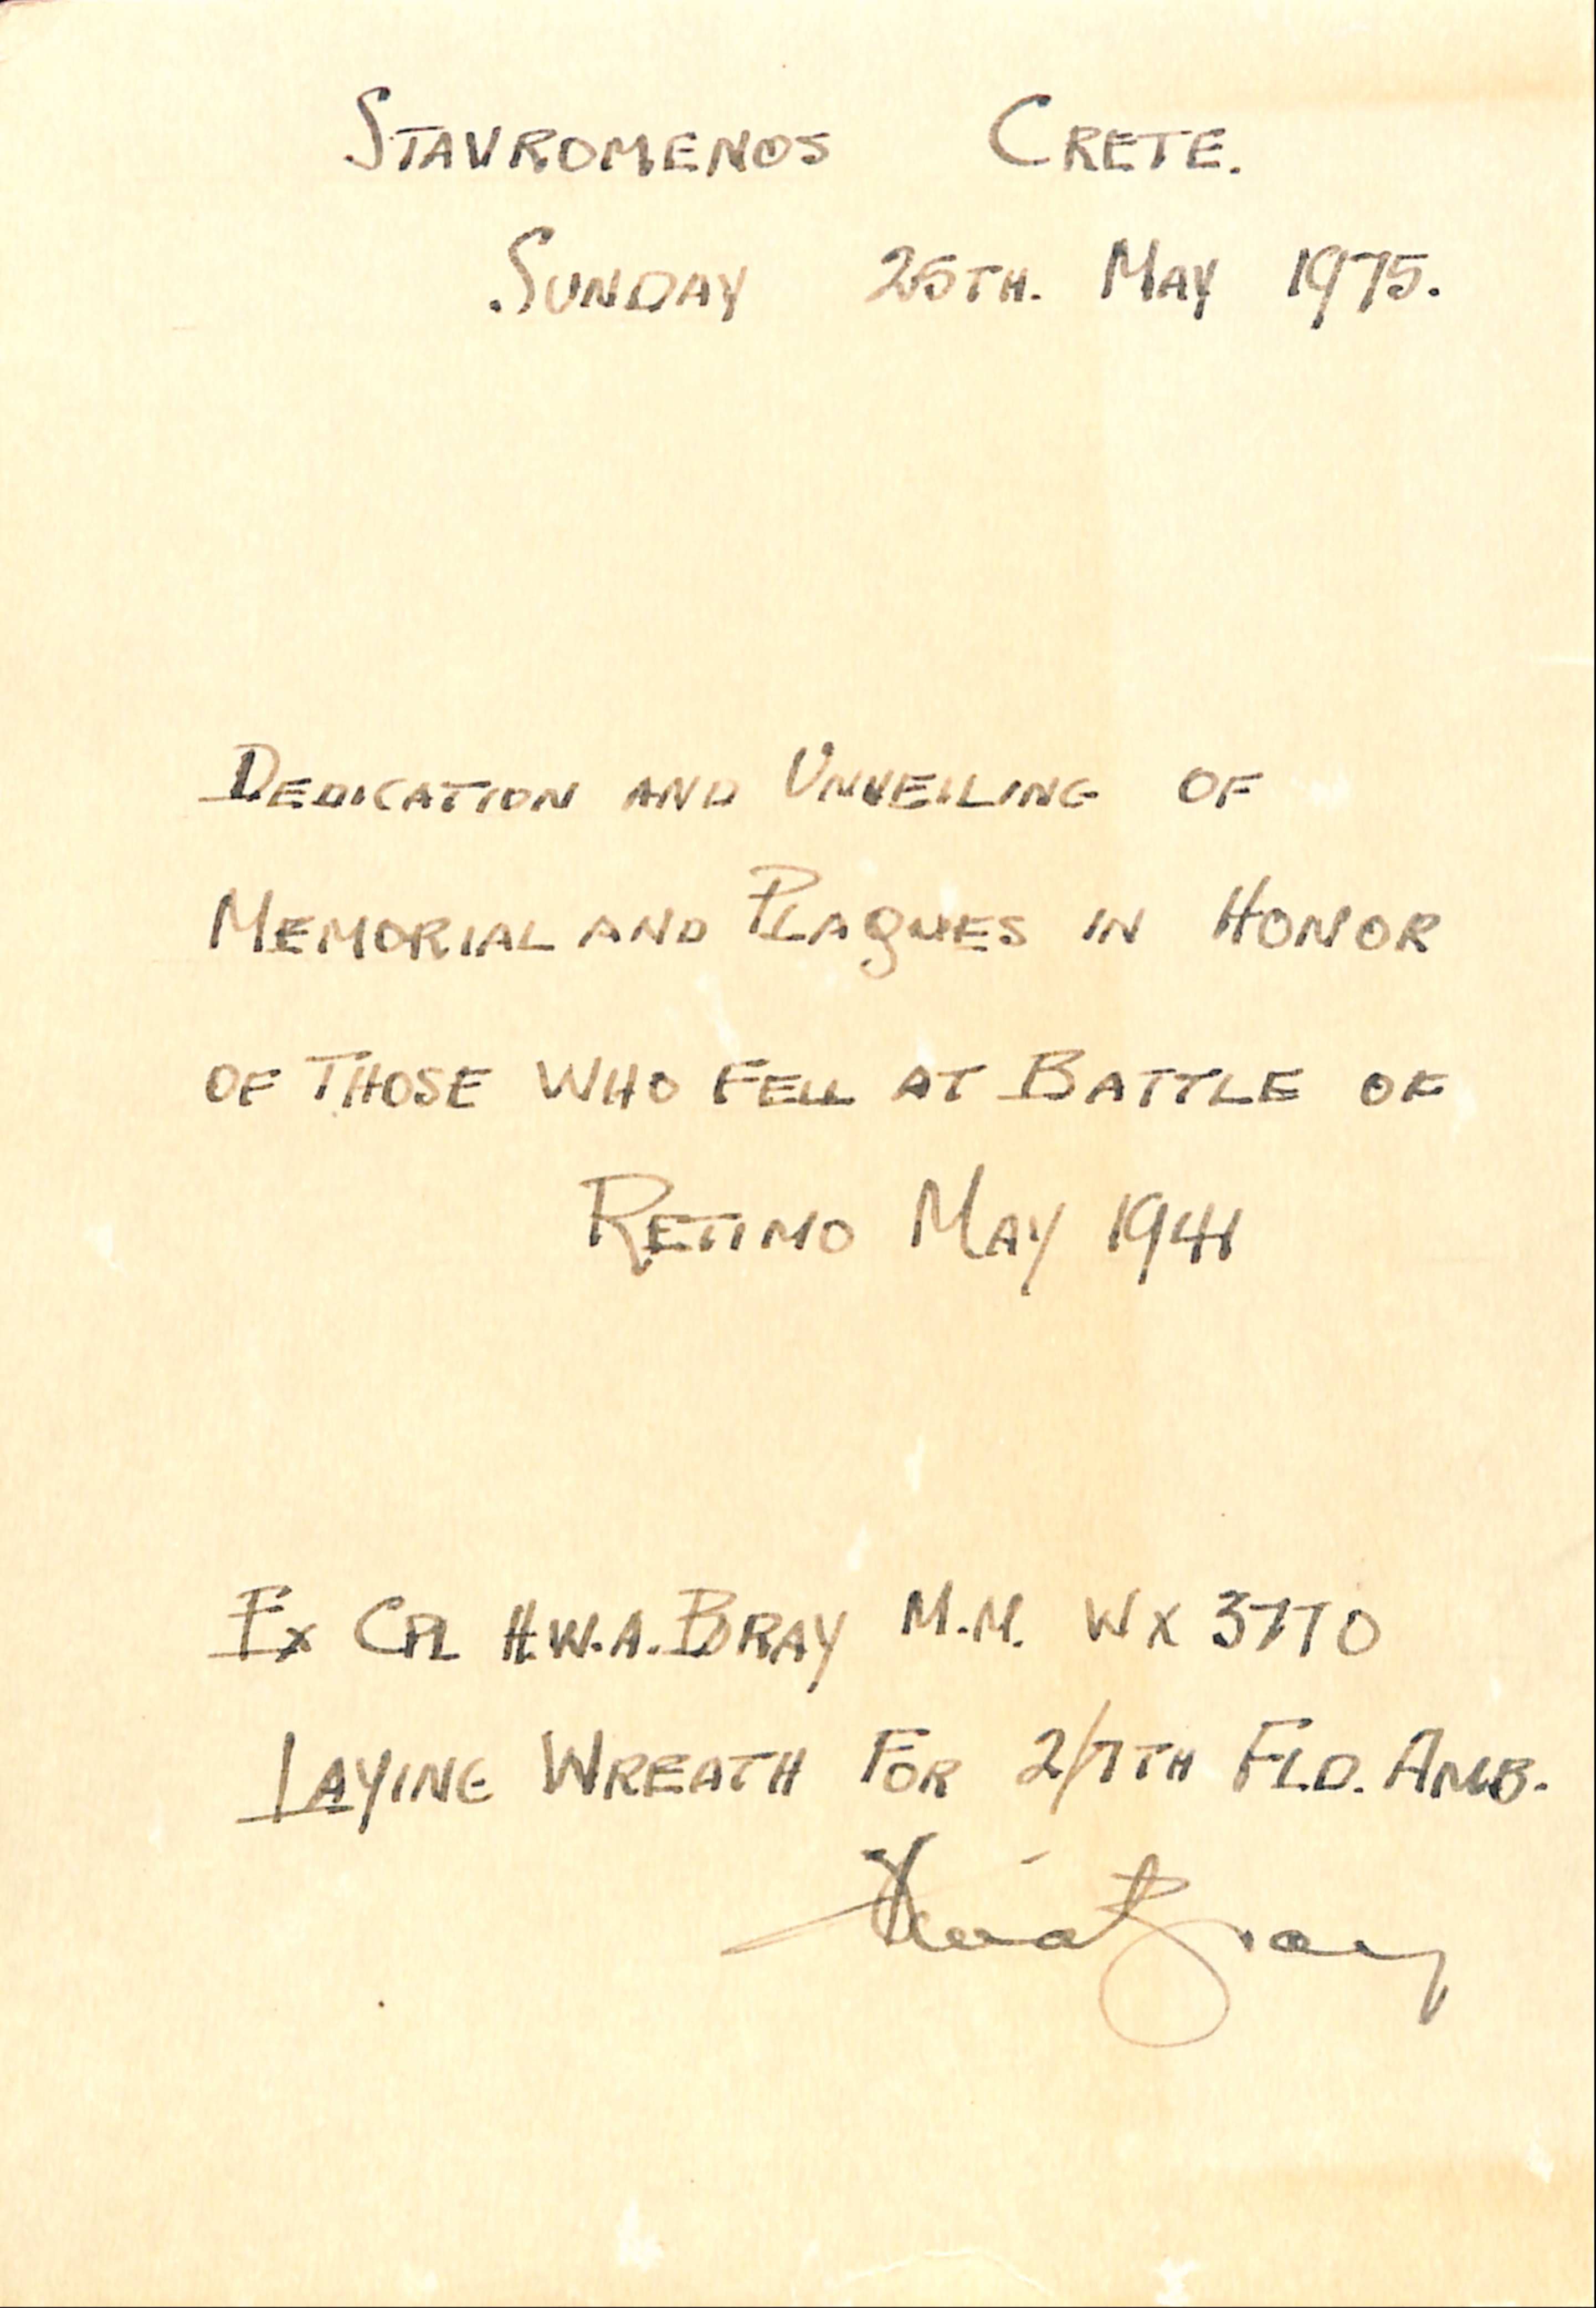 STAVROMENOS CRETE.
SUNDAY 25TH. MAY 1975.
DEDICATION AND UNVEILING OF
MEMORIAL AND PLAQUES IN HONOR
OF THOSE WHO FELL AT BATTLE OF
RETIMO MAY 1941
EX CPL H.W.A. BRAY M.M. WX 3770
LAYING WREATH FOR 2/7TH FLD. AMB.
Bray